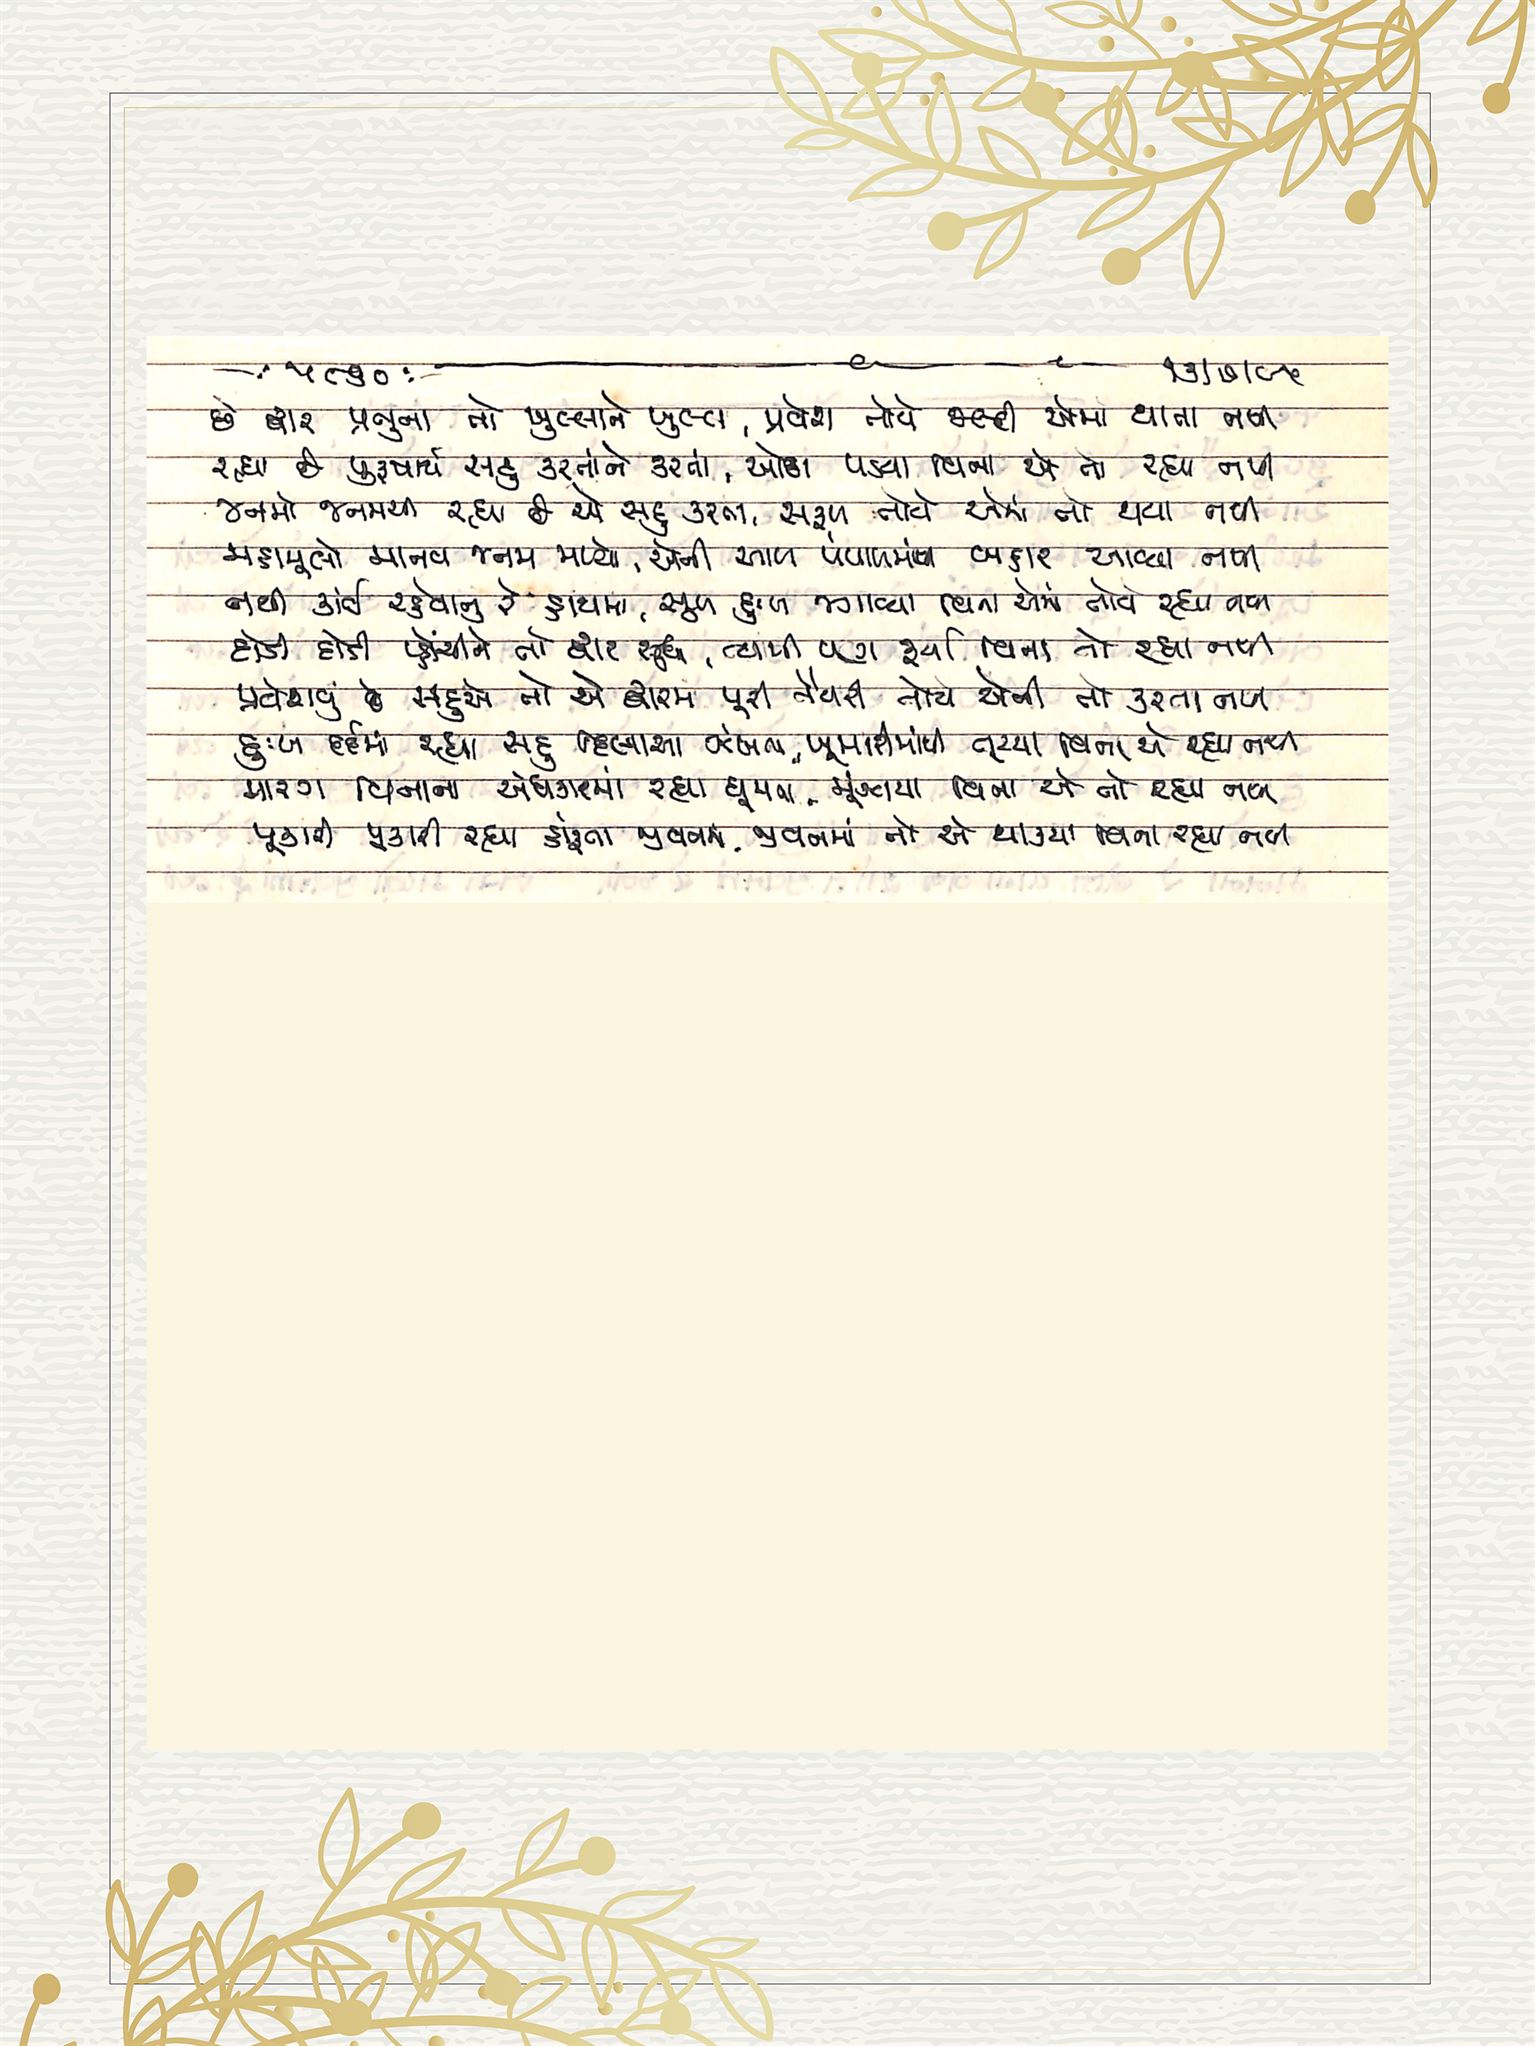 ૫૯૭૦
છે દ્વાર પ્રભુના તો ખુલ્લાને ખુલ્લા, પ્રવેશ તોયે જલ્દી એમાં થાતા નથી
રહ્યા છે પુરૂષાર્થ સહુ કરતાંને કરતાં, ઓછા પડયા વિના એ તો રહ્યા નથી
જનમો જનમથી રહ્યા છે એ સહુ કરતા, સફળ તોયે એમાં તો થયા નથી
મહામૂલો માનવ જનમ મળ્યો, એની આળ પંપાળમાંથી બહાર આવ્યા નથી
નથી કાંઈ રહેવાનુ રે હાથમાં, સુખ દુઃખ જગાવ્યા વિના એમાં તોયે રહ્યા નથી
દોડી દોડી પ્હોંચીને તો દ્વાર સુધી, ત્યાંથી પણ ફર્યા વિના તો રહ્યા નથી
પ્રવેશવું છે સહુએ તો એ દ્વારમાં પૂરી તૈયારી તોયે એની તો કરતા નથી
દુઃખ દર્દમાં રહ્યા સહુ દિલાસા ઝંખતા, ખૂમારીમાંથી તૂટયા વિના એ રહ્યા નથી
મારગ વિનાના અંધકારમાં રહ્યા ઘૂમતા, મૂંઝાયા વિના એ તો રહ્યા નથી
પૂકારી પૂકારી રહ્યા હાંફતા જીવનમાં, જીવનમાં તો એ થાક્યા વિના રહ્યા નથી